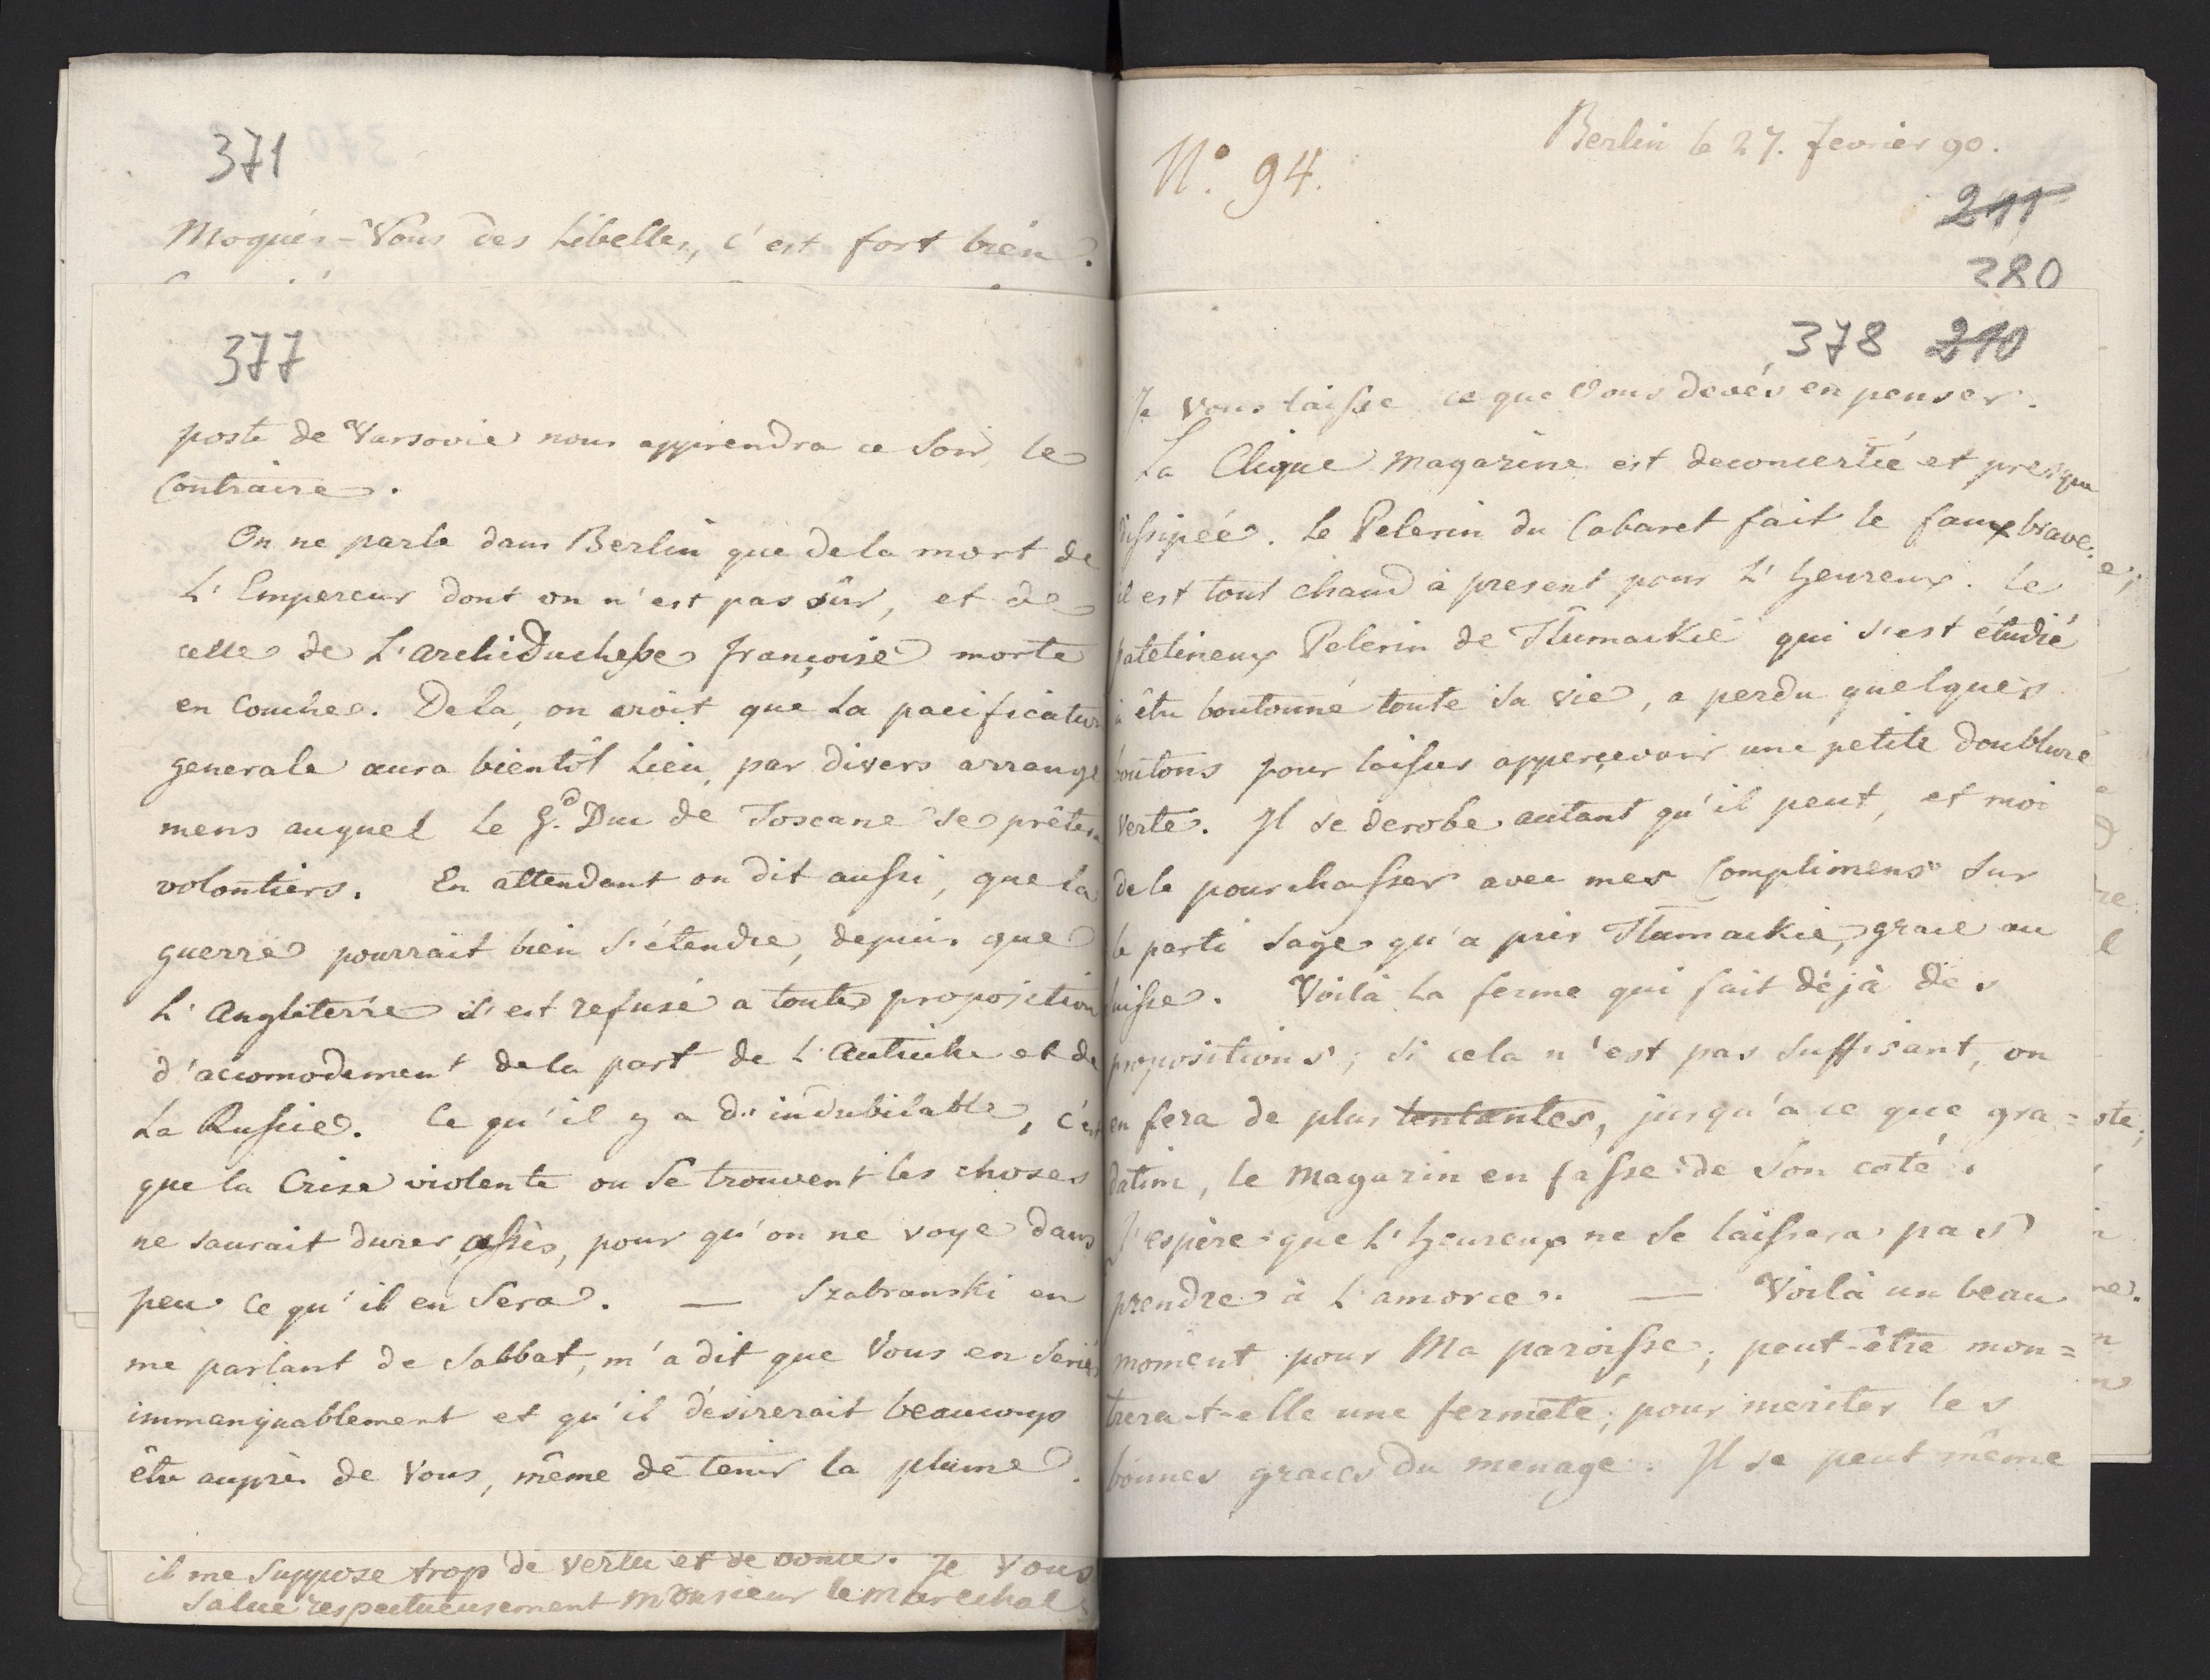 371
Moqués-Vous des Libelles, c'est fort bien.
377
poste de Varsovie nous apprendra ce Soir, le
Contraire.
On ne parle dans Berlin que de la mort de
L'Empereur dont on n'est pas sûr, et de
celle de L'archiDuchesse françoise morte
en Couches. De la, on croit que la pacification
generale aura bientôt Lieu, par divers arrange
mens auquel le G.d Duc de Toscane se prêtera
volontiers. En attendant on dit aussi, que la
guerre pourrait bien s'étendre, depuis que
L'Angleterre s'est refusé a toute proposition
d'accomodement de la part de L'Autriche et de
La Russie. Ce qu'il y a d'indubitable, c'est
que la Crise violente ou se trouvent les choses
ne saurait durer assès, pour qu'on ne voye dans
peu ce qu'il en Sera. — Szabranski en
me parlant de Sabbat, m'a dit que Vous en seriés
immanquablement et qu'il désirerait beaucoup
être auprès de Vous, même de tenir la plume.
il me suppose trop de vertu et de Je Vous
Salue respectueusement Monsieur le Marechal
N.° 94.
Berlin le 27. fevrier 90.
211
280
378 210
Je vous laisse ce que Vous devés en penser.
La Clique Magazine est deconcertée et presque
dissipée. Le Pelerin du Cabaret fait le faux brave;
il est tout chaud à present pour L'heureux. Le
patelineux Pelerin de Tłumackie qui s'est étudié
à être boutonné toute sa vie, a perdu quelques
boutons pour laisser apperçevoir une petite doublure
verte. Il se derobe autant qu'il peut, et moi
de le pourchasser avec mes Complimens sur
le parti sage qu'a pris Tłumackie, grace au
Suisse. Voilà la ferme qui fait déjà des
propositions; si cela n'est pas suffisant, on
en fera de plus tentantes, jusqu'à ce que gra=
datim, le Magazin en fasse de son coté.
J'espère que L'heureux ne se laissera pas
prendre à L'amorce. — Voilà un beau
moment pour Ma paroisse; peut-être mon=
trera-t-elle une fermeté; pour meriter les
bonnes graces du menage. Il se peut même